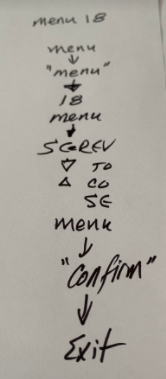 menu 18
menu
↓
"menu"
↓
18
menu
↓
SGREV
▽ TO
△ CO
SE
menu
↓
"Confirm"
↓
Exit